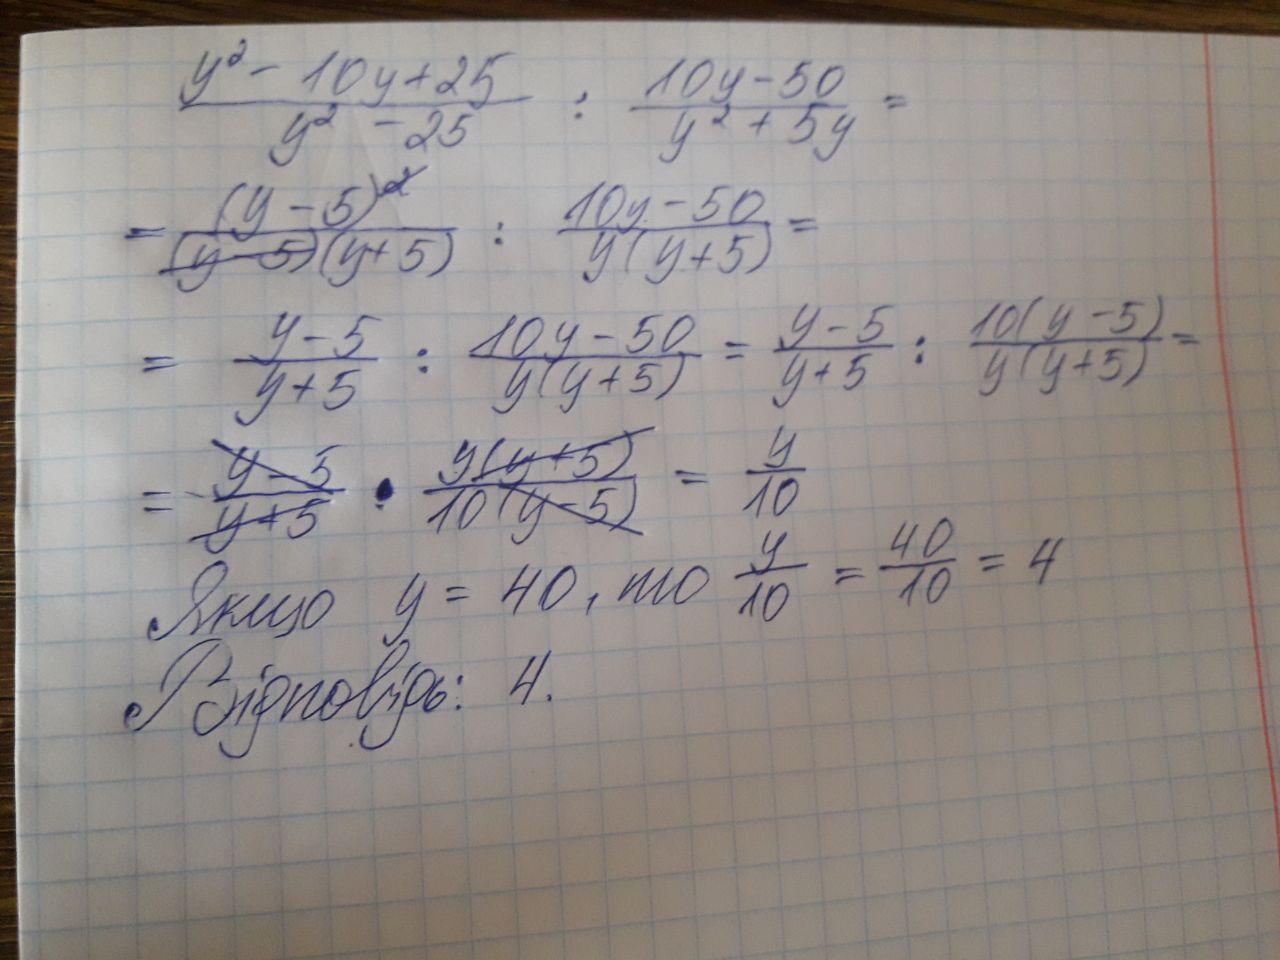 (y² - 10y + 25)/(y² - 25) : (10y - 50)/(y² + 5y) =
= (y - 5)²/((y - 5)(y + 5)) : (10y - 50)/(y(y + 5)) =
= (y - 5)/(y + 5) : (10y - 50)/(y(y + 5)) = (y - 5)/(y + 5) : (10(y - 5))/(y(y + 5)) =
= (y - 5)/(y + 5) • (y(y + 5))/(10(y - 5)) = y/10
Якщо y = 40, то y/10 = 40/10 = 4
Відповідь: 4.